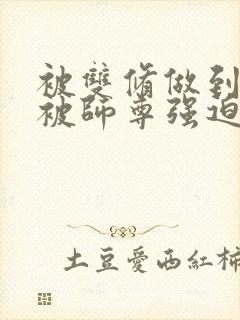 被雙脩做到
被師尊强迫
土豆愛西紅柿